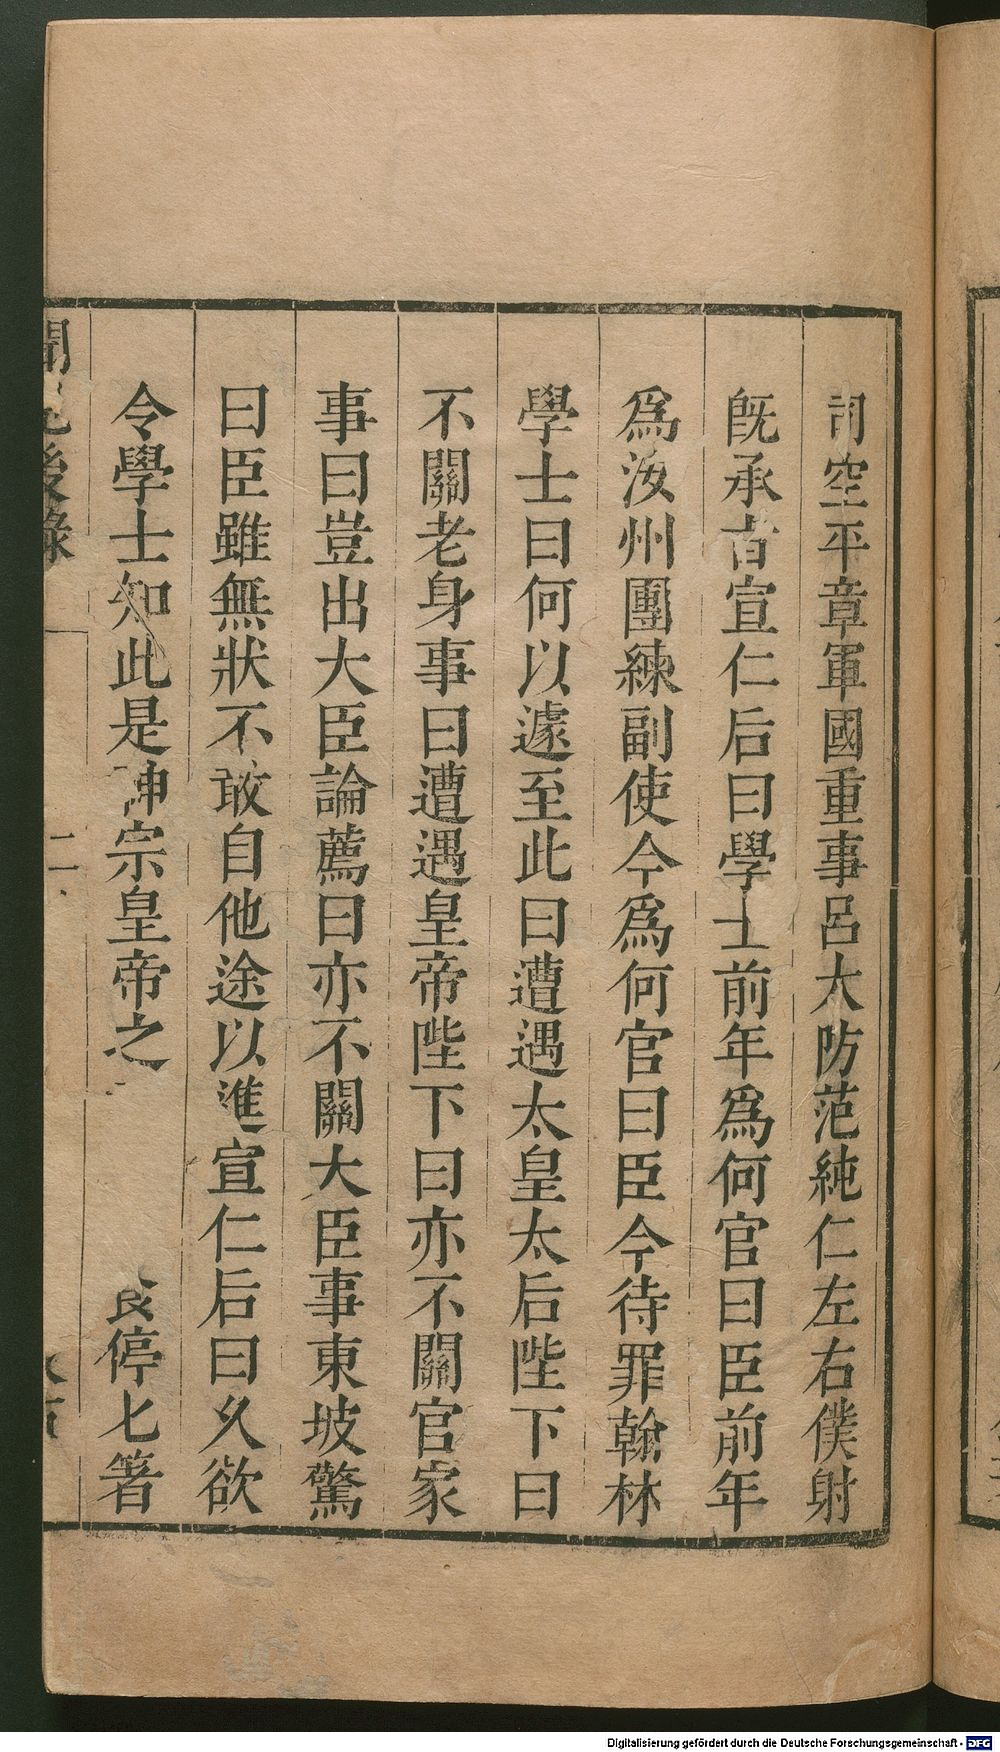 司空平章軍國重事呂大防范純仁左右僕射
旣承旨宣仁后曰學士前年爲何官曰臣前年
爲汝州團練副使今爲何官曰臣今待罪翰林
學士曰何以遽至此曰遭遇太皇太后陛下曰
不關老身事曰遭遇皇帝陛下曰亦不關官家
事曰豈出大臣論薦曰亦不關大臣事東坡驚
曰臣雖無狀不敢自他途以進宣仁后曰乆欲
令學士知此是神宗皇帝之 食停匕箸
聞見後錄 二
Digitalisierung gefördert durch die Deutsche Forschungsgemeinschaft - DFG